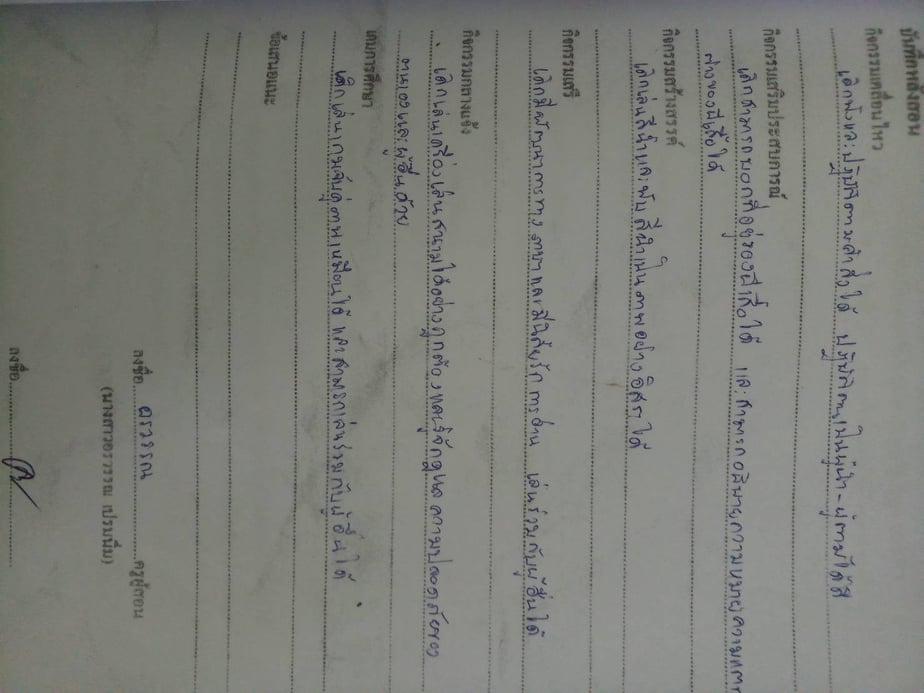 บันทึกหลังสอน
กิจกรรมเคลื่อนไหว
เด็กฟังและปฏิบัติตามคำสั่งได้ ปฏิบัติตนเป็นผู้นำ-ผู้ตามได้ดี
กิจกรรมเสริมประสบการณ์
เด็กสามารถบอกที่อยู่ของผีเสื้อได้ และสามารถอธิบายความหมายความแตก
ต่างของผีเสื้อได้
กิจกรรมสร้างสรรค์
เด็กเล่นสีน้ำและพับสีน้ำเป็นภาพอย่างอิสระได้
กิจกรรมเสรี
เด็กมีพัฒนาการทางภาษาและมีนิสัยรักการอ่าน เล่นร่วมกับผู้อื่นได้
กิจกรรมกลางแจ้ง
เด็กเล่นเครื่องเล่นสนามได้อย่างถูกต้องและรู้จักดูแลความปลอดภัยของ
ตนเองและผู้อื่นด้วย
เกมการศึกษา
เด็กเล่นเกมจับคู่ภาพเหมือนได้ และสามารถเล่นร่วมกับผู้อื่นได้
ข้อเสนอแนะ
ลงชื่อ อรวรรณ ครูผู้สอน
(นางสาวอรวรรณ เปรมปริ่ม)
ลงชื่อ